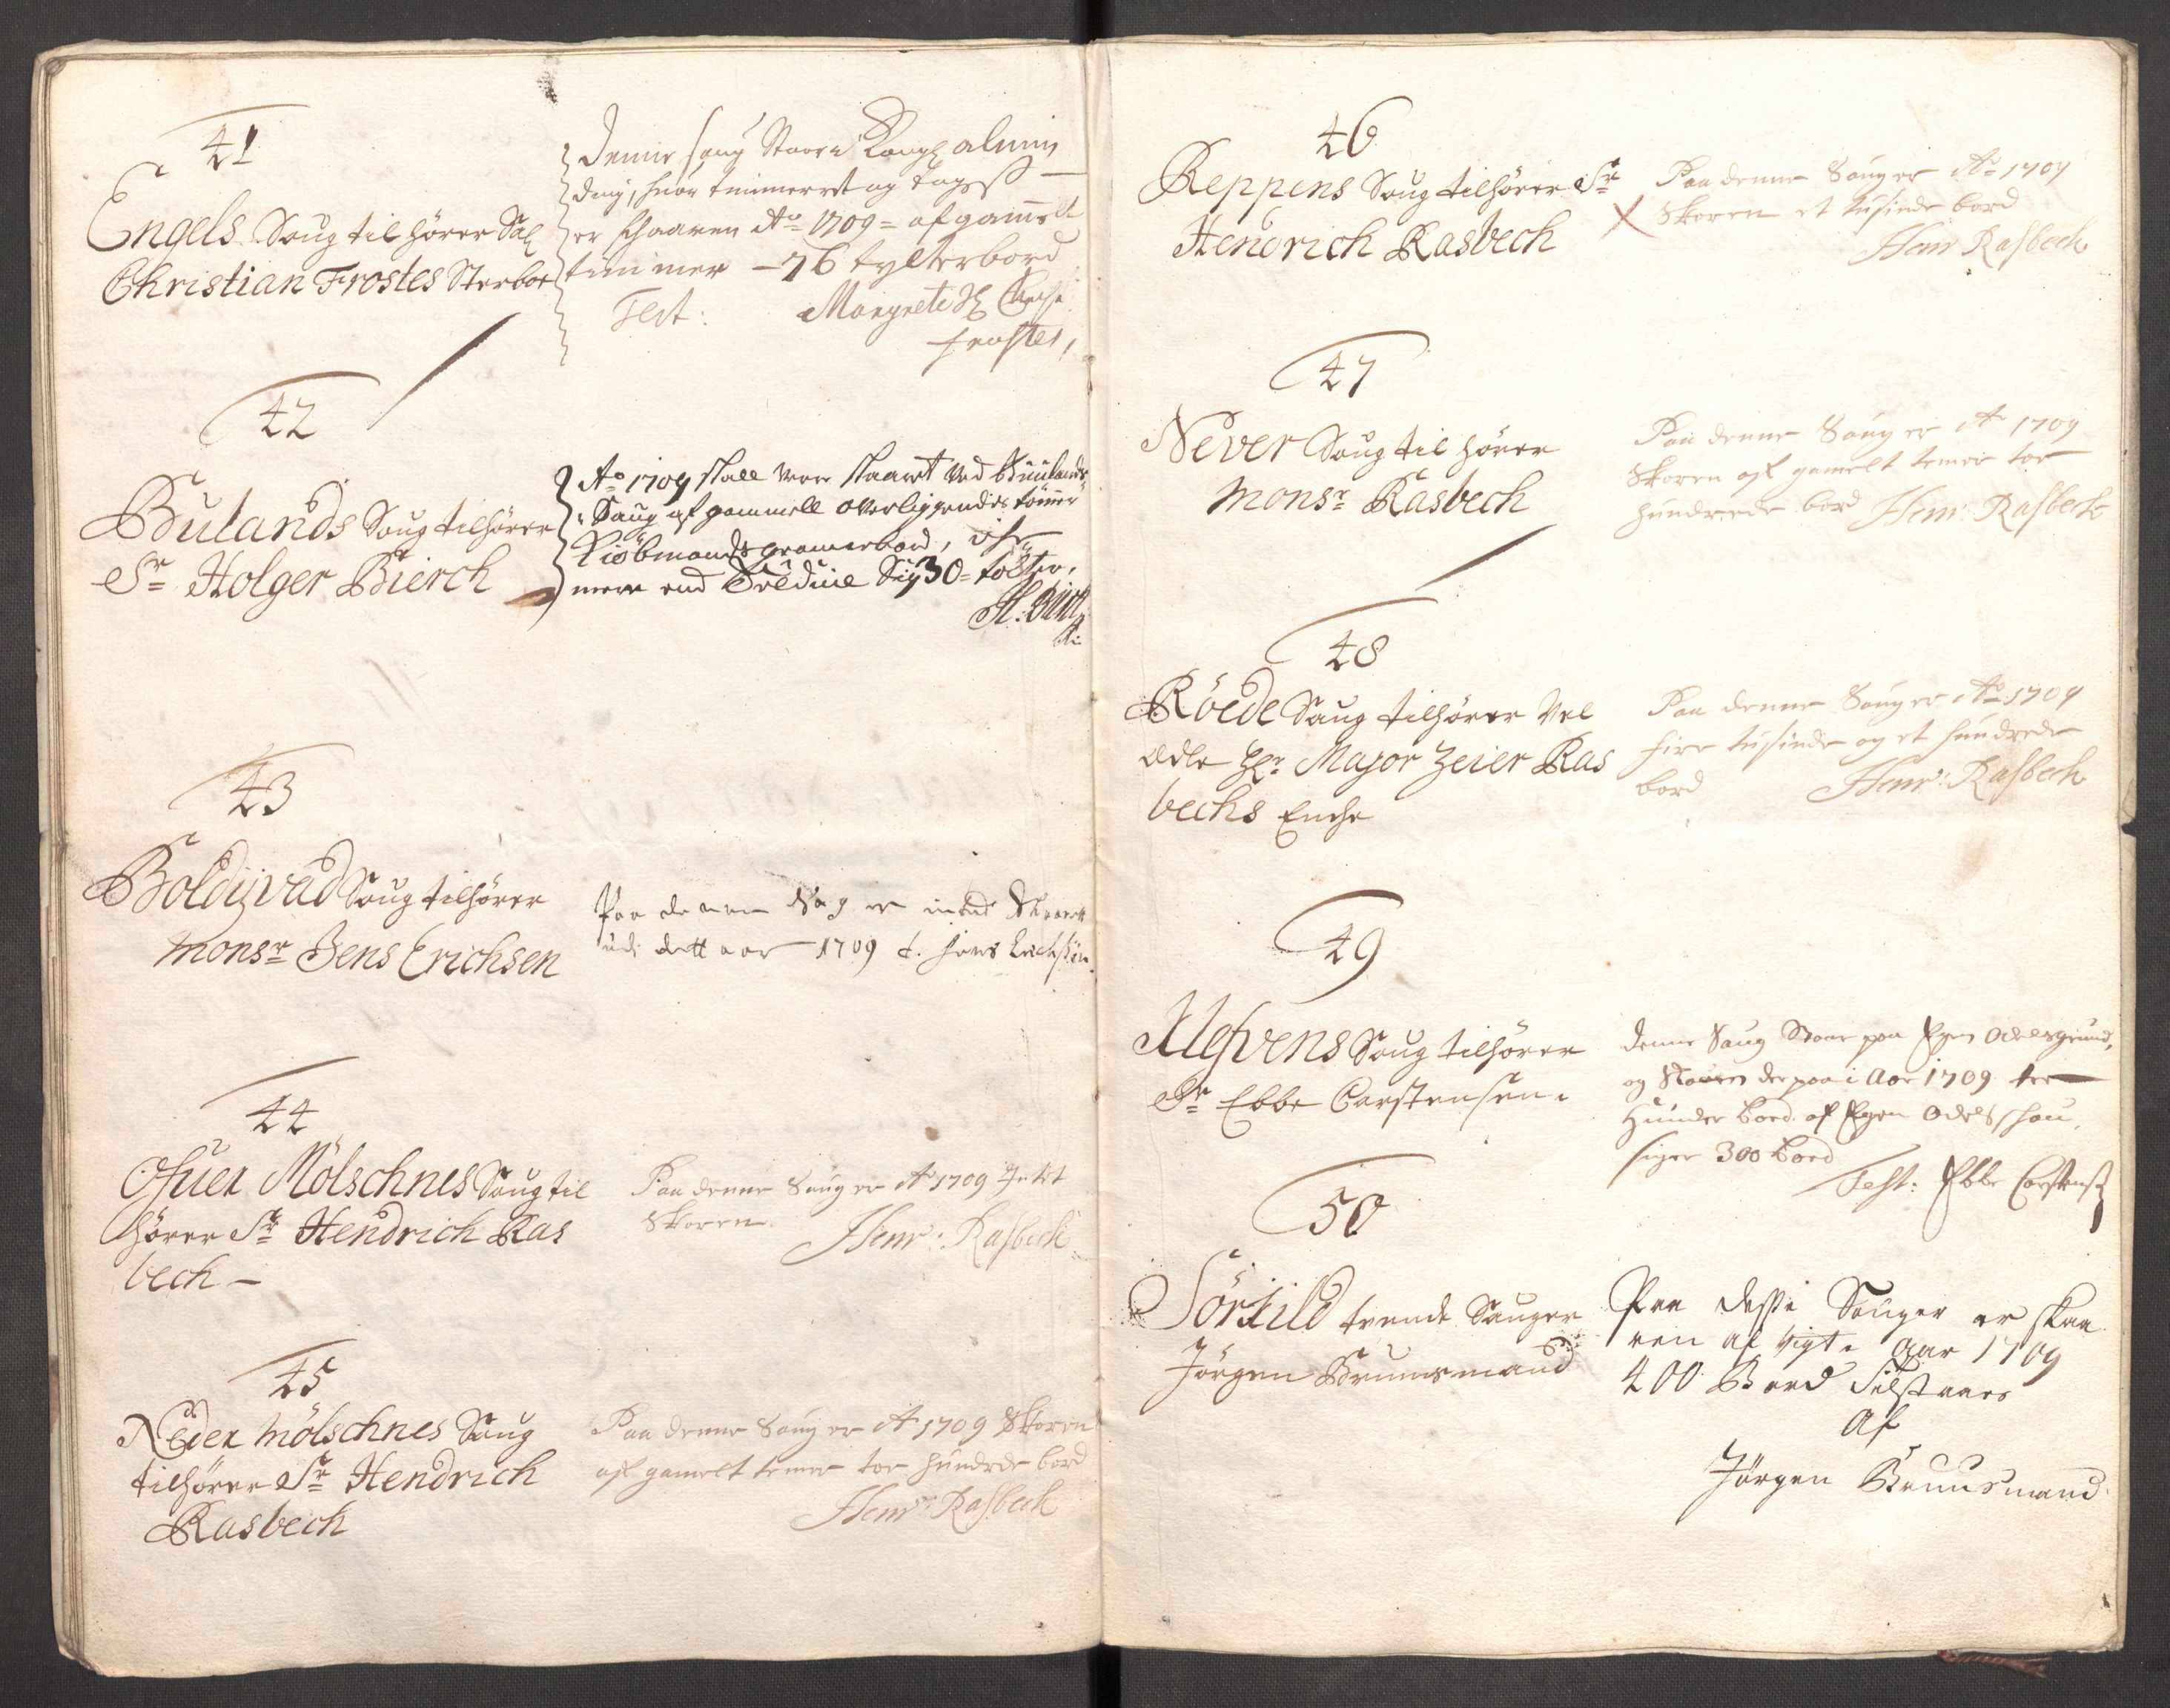 41
Engels Saug til hører Sal
Christian Frostes Sterboe
Denne saug Staar i Kongl almin
ding, hvor timmerret og tages
er skaaren Ao 1709 = af gammelt
timmer - 76 tylterbord
Test: Margrete Sl Chr:
frostes,
42
Bulands Saug tilhører
Sr Holger Bierch
Ao 1709 skall være skaaret ved Buulands
Saug af gammell overliggendes tømmer
Kiøbmands bord,
mere end Tredive Sig 30 = tolter,
H: Birch
43
Boldijvad Saug tilhører
Monsr Jens Erichsen
Paa denne Sag er inted Skaarett
udi dett aar 1709 Jens Erichsøn
44
Ofuer Mölschnes Saug til
hører Sr Hendrich Kas
bech -
Paa denne Saug er Ao 1709 Intet
Skoren.
Henr: Kasbech
45
Neder Mölschnes Saug
tilhører Sr Hendrich
Kasbech
Paa denne Saug er Ao 1709 Skoren
aff gamelt temer toe hundrde bord
Henr: Kasbech
46
Reppens Saug tilhører Sr
Hendrich Kasbech
Paa denne Saug er Ao 1709
Skoren et tusinde bord
Henr Kasbech
47
Never Saug til hører
Monsr Kasbech
Paa denne Saug er Ao 1709
Skoren aff gamelt temer toe
hundrede bord Henr: Kasbech
48
Röede Saug tilhører Vel
ædle Hr: Major Zeier Kas
bechs Enche
Paa denne Saug er Ao 1709
fire tusinde og et hundrede
bord Henr: Kasbech
49
Saug tilhører
Sr Ebbe Carstensen.
Denne Saug Staar paa Egen Odelsgrund,
og Skaaren der paa i Aar 1709 tre
Hunder bord af Egen Odels skou,
siger 300 bord
Test: Ebbe Carstens
50
Sörfild tvende Sauger
Jörgen Bruunsmand
Paa desse Sauger er skaa
ren af Aar 1709
400 Bord
Af
Jörgen Bruunsmand